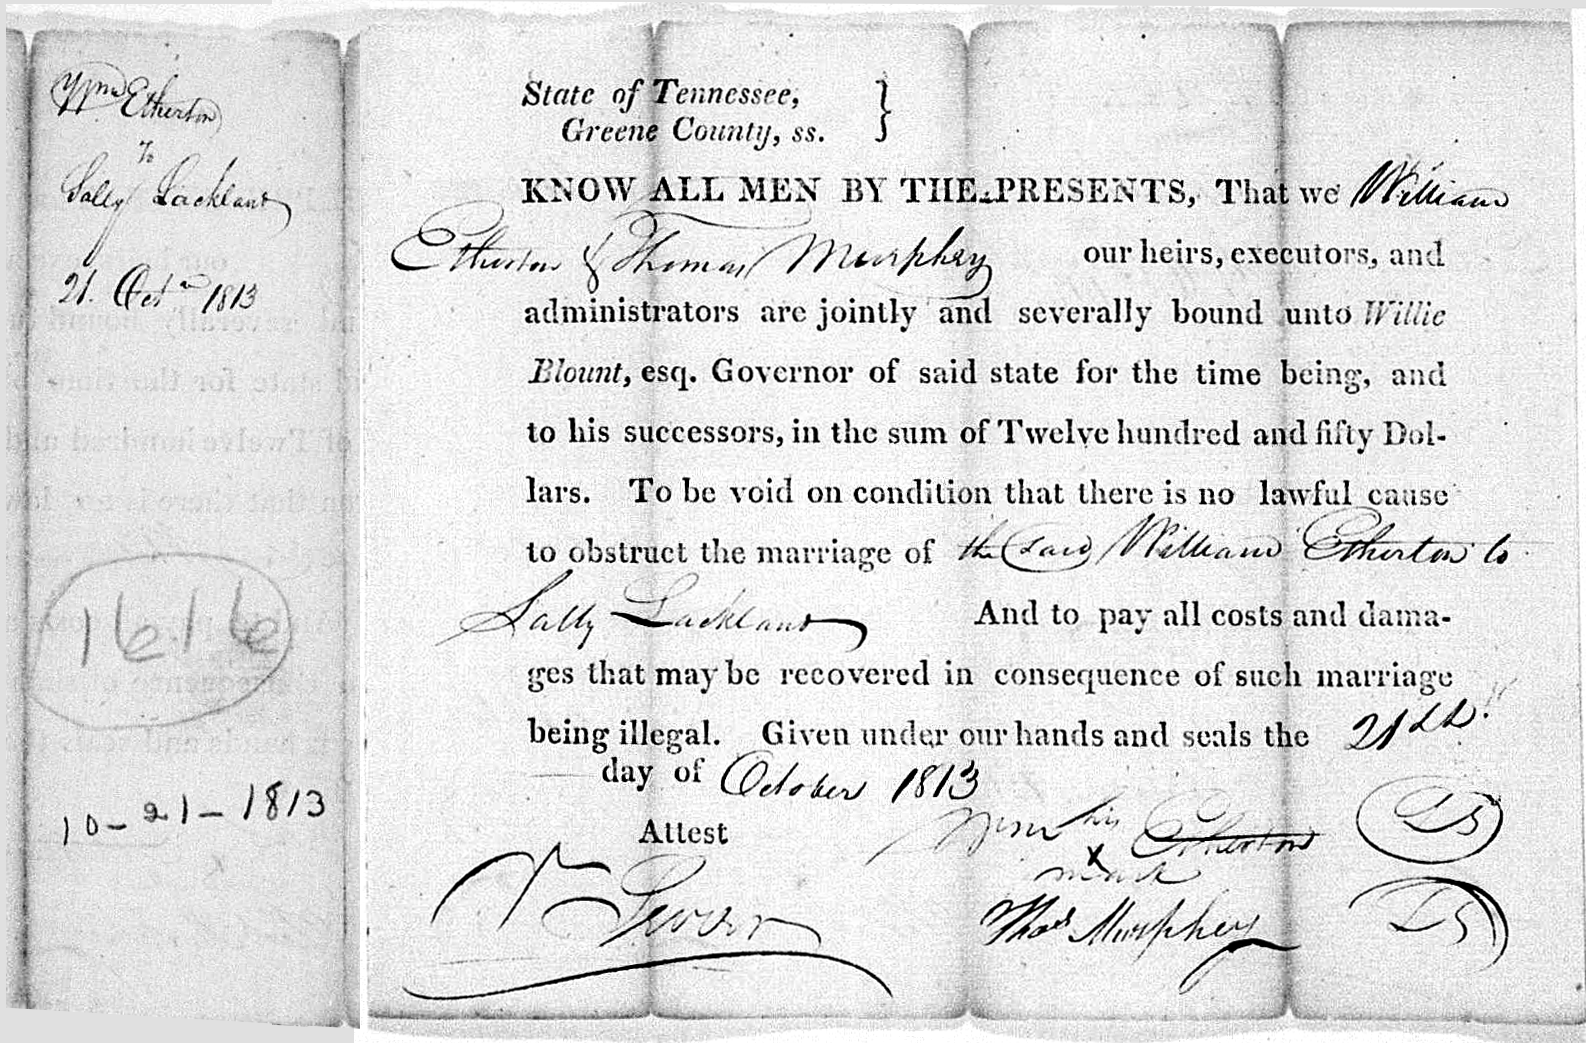 Wm. Etherton
To
Sally Lackland
21. Octr 1813
1616
10-21-1813
State of Tennessee, }
Greene County, ss.
KNOW ALL MEN BY THE PRESENTS, That we William
Etherton & Thomas Murphey our heirs, executors, and
administrators are jointly and severally bound unto Willie
Blount, esq. Governor of said state for the time being, and
to his successors, in the sum of Twelve hundred and fifty Dol-
lars. To be void on condition that there is no lawful cause
to obstruct the marriage of the said William Etherton to
Sally Lackland And to pay all costs and dama-
ges that may be recovered in consequence of such marriage
being illegal. Given under our hands and seals the 21st
day of October 1813
Attest
Wm his Etherton LS
X
mark
V Sevier
Thos Murphey LS